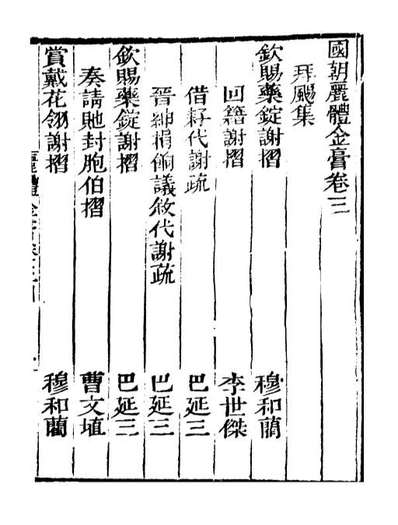 國朝麗體金膏卷三
拜颺集
欽賜藥錠謝摺 穆和藺
回籍謝摺 李世傑
借籽代謝疏 巴延三
晉紳捐餉議敘代謝疏 巴延三
欽賜藥錠謝摺 巴延三
奏請貤封胞伯摺 曹文埴
賞戴花翎謝摺 穆和藺